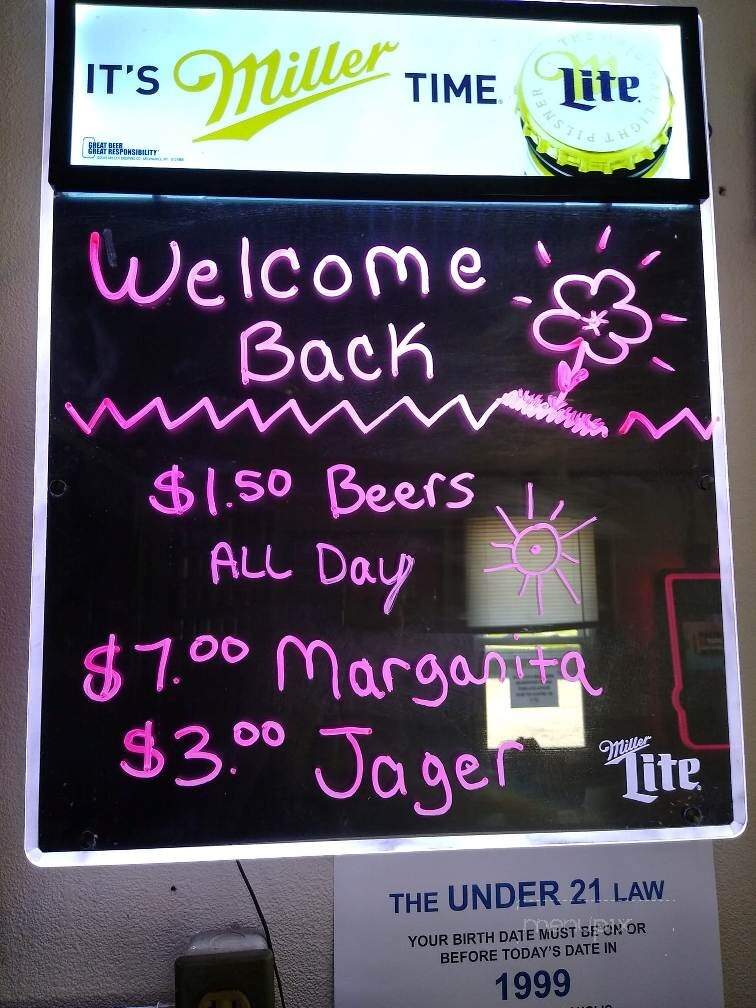 IT'S Miller TIME.
Lite
GREAT BEER
GREAT RESPONSIBILITY
Welcome
Back
$1.50 Beers
ALL Day
$7.00 Margarita
$3.00 Jager
Miller
Lite
THE UNDER 21 LAW
YOUR BIRTH DATE MUST BE ON OR
BEFORE TODAY'S DATE IN
1999